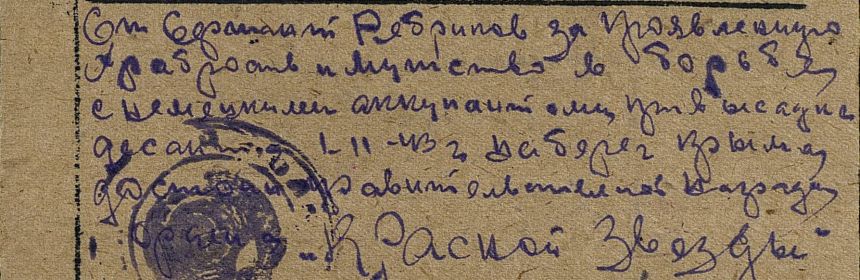 Ст Сержант Ребриков за проявленную
храбрость и мужество в борьбе
с немецкими аккупантоми при высадки
десанта 1-11-43 г на берег крыма
достоин правительственной награды
Ордина "Красной Звезды"